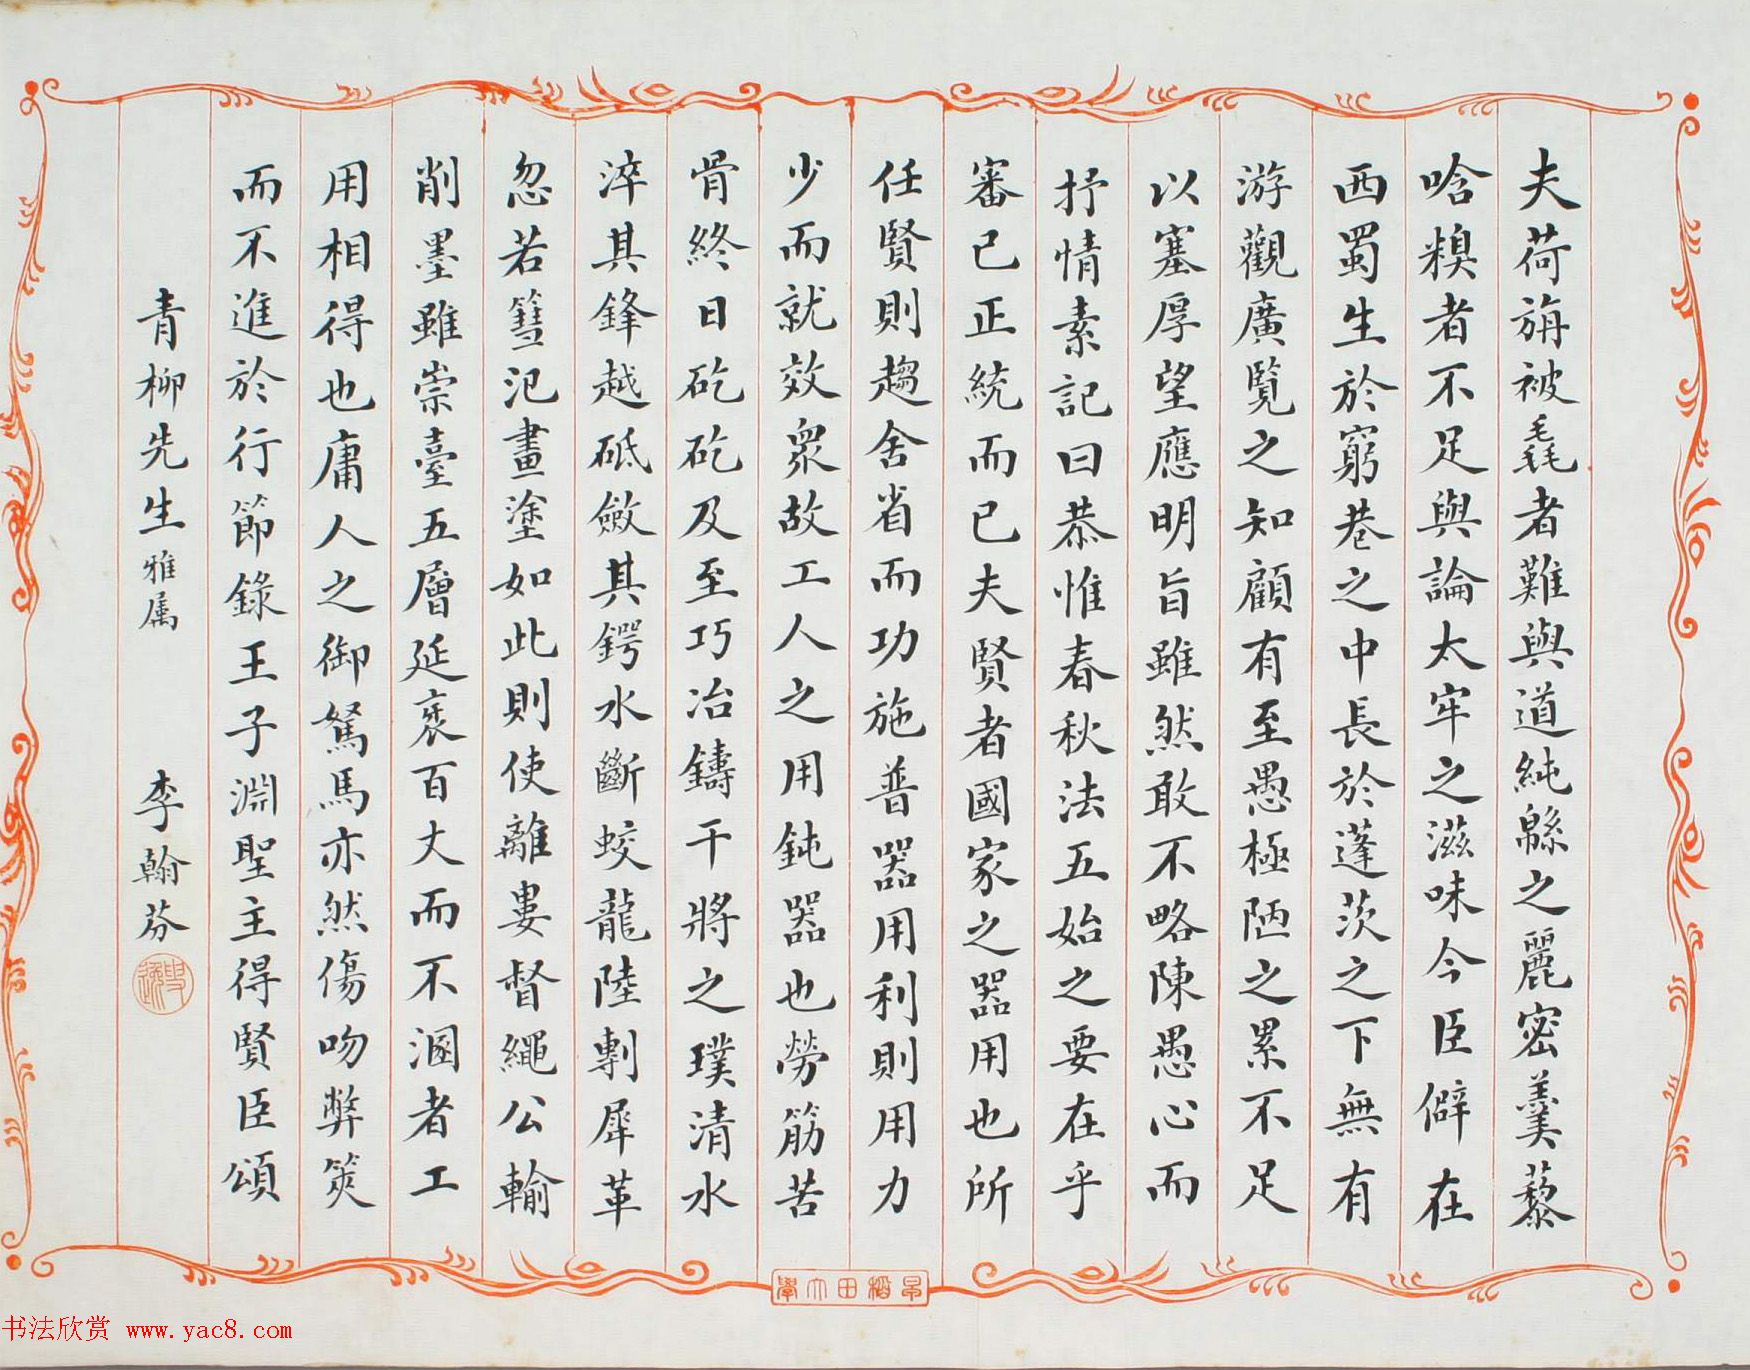 夫荷旃被毳者難與道純緜之麗密羹藜
唅糗者不足與論太牢之滋味今臣僻在
西蜀生於窮巷之中長於蓬茨之下無有
游觀廣覽之知顧有至愚極陋之累不足
以塞厚望應明旨雖然敢不略陳愚心而
抒情素記曰恭惟春秋法五始之要在乎
審己正統而已夫賢者國家之器用也所
任賢則趨舍省而功施普器用利則用力
少而就效衆故工人之用鈍器也勞筋苦
骨終日矻矻及至巧冶鑄干將之璞清水
淬其鋒越砥斂其鍔水斷蛟龍陸剸犀革
忽若篲氾畫塗如此則使離婁督繩公輸
削墨雖崇臺五層延袤百丈而不溷者工
用相得也庸人之御駑馬亦然傷吻弊筴
而不進於行節錄王子淵聖主得賢臣頌
青柳先生雅属 李翰芬
早稻田大學
书法欣赏 www.yac8.com